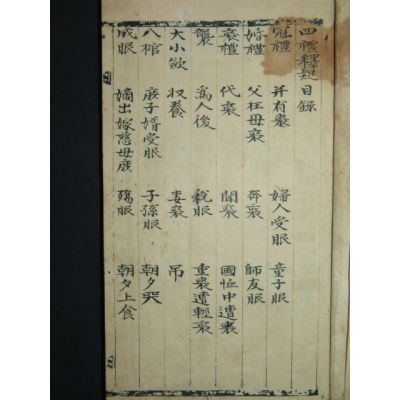 四禮釋疑目錄
冠禮 并有喪 婦人受服 童子服
婚禮 父在母喪 奔喪 師友服
喪禮 代喪 聞喪 國恤中遭喪
襲 爲人後 稅服 重喪遭輕喪
大小斂 收養 妻喪 吊
入棺 庶子婿受服 子孫服 朝夕哭
成服 嫡出嫁慈母庶 殤服 朝夕上食